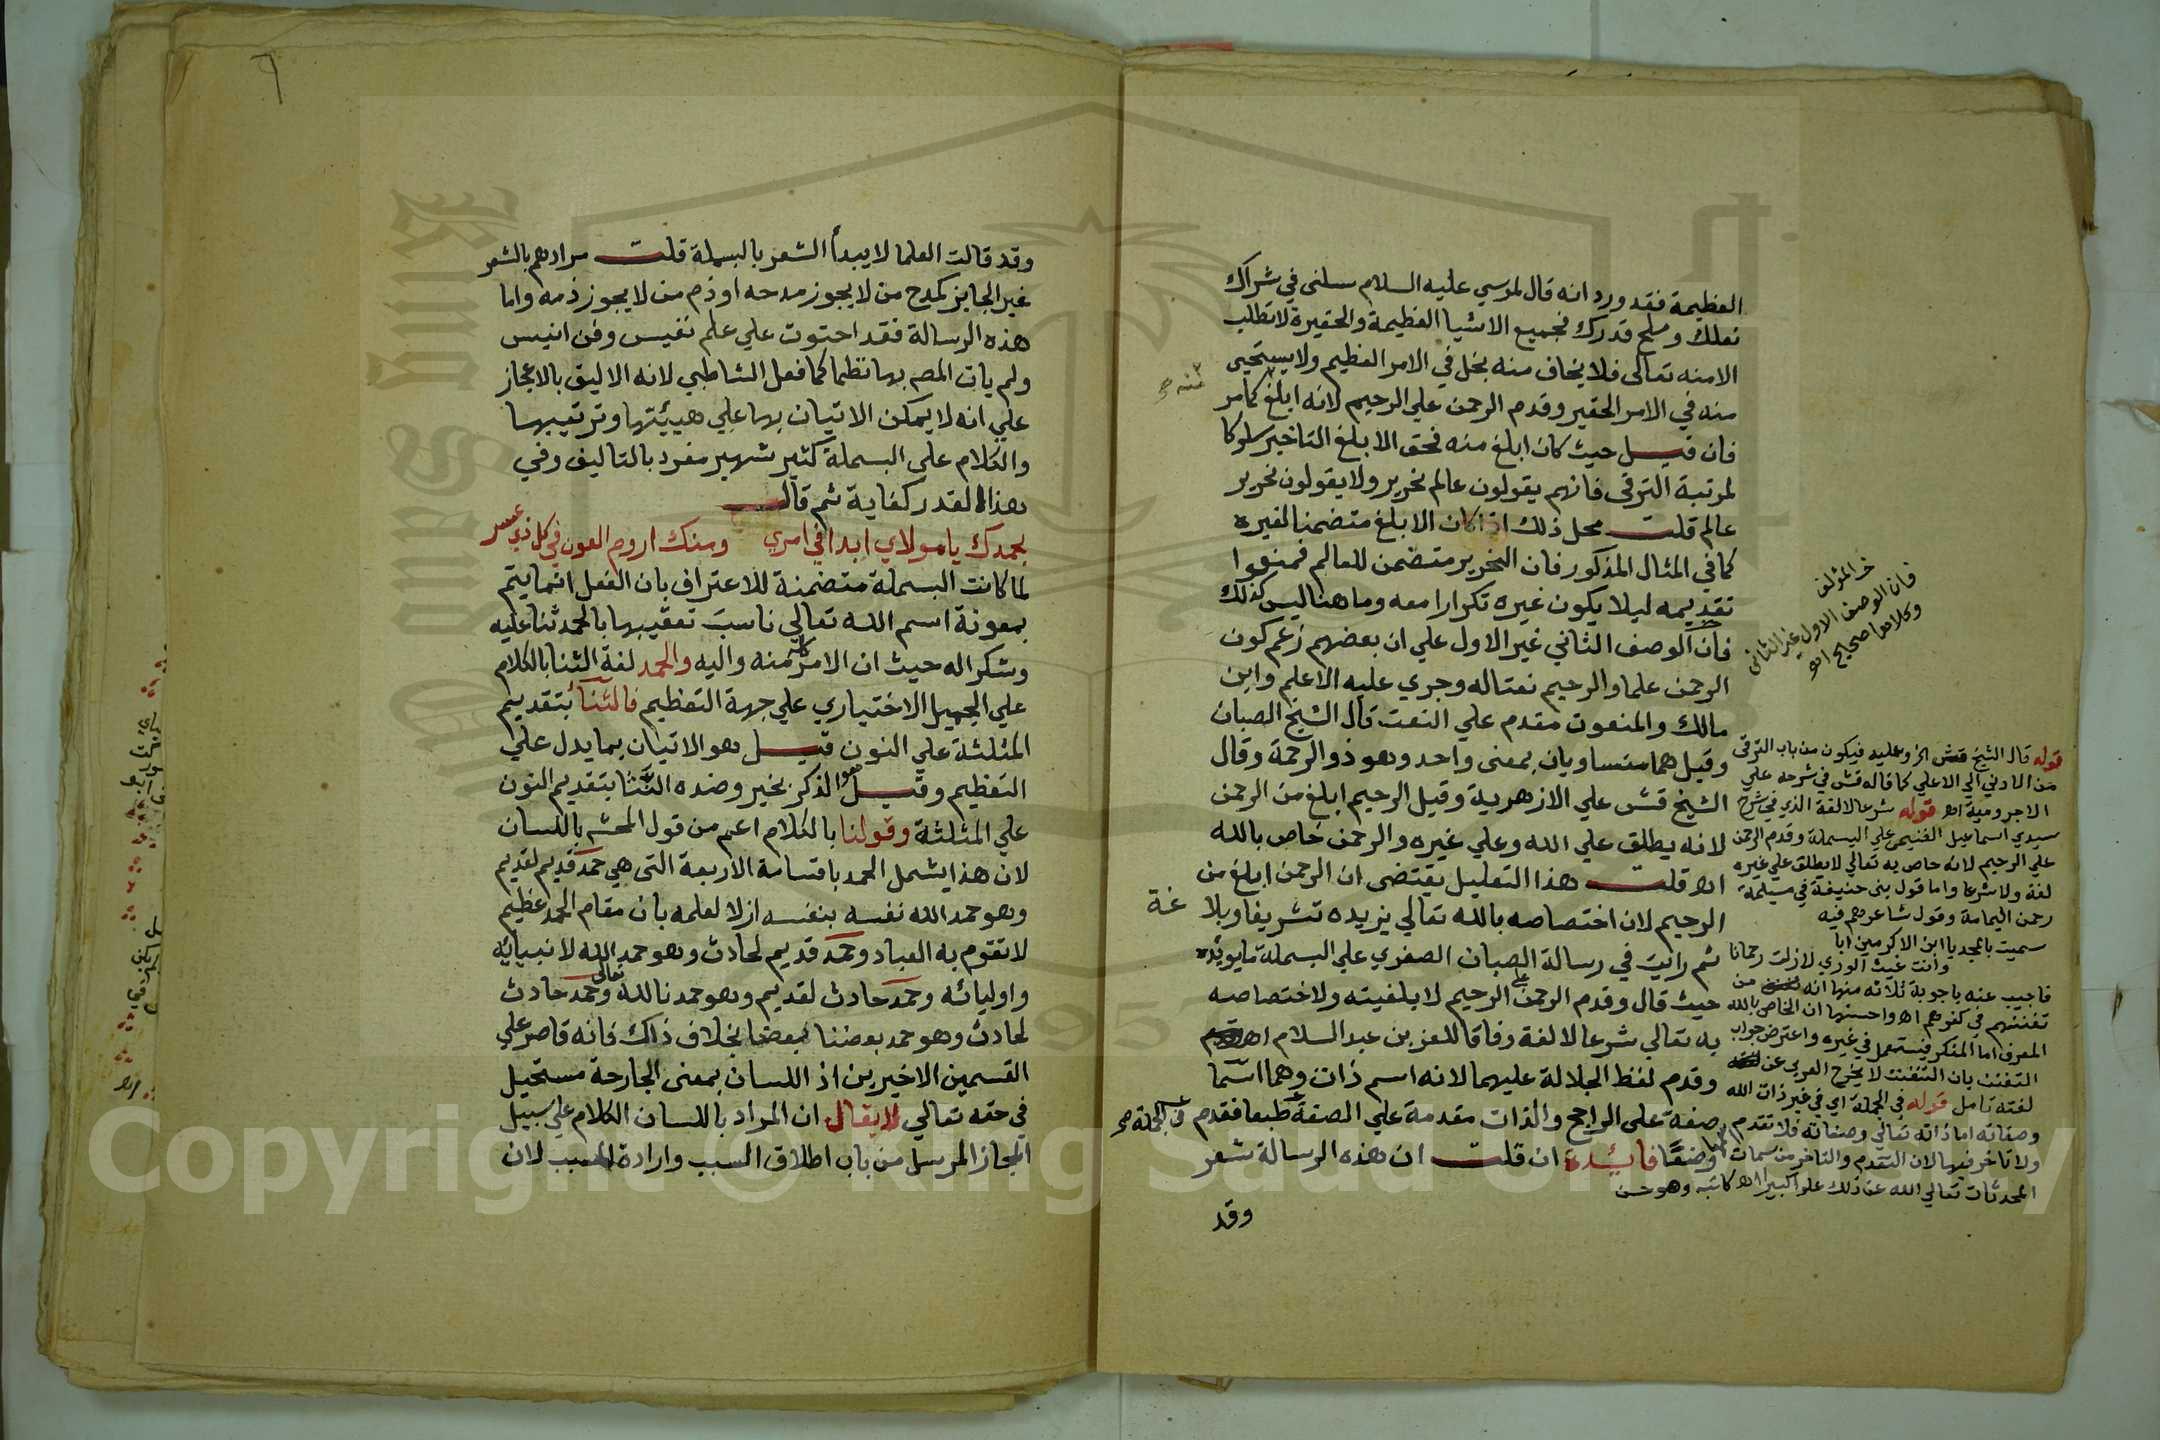 العظيمة فقد ورد انه قال لموسي عليه السلام سلني في شراك
نعلك وملح قدرك فجميع الاشيا العظيمة والحقيرة لا تطلب
الا منه تعالى فلا يخاف منه بخل في الامر العظيم ولا يستحيى
منه في الامر الحقير وقدم الرحمن علي الرحيم لانه ابلغ كما مر
منه صح
فان قيل حيث كان ابلغ منه فحق الابلغ التاخير سلوكا
لمرتبة الترقى فانهم يقولون عالم نحرير ولا يقولون نحرير
عالم قلت محل ذلك اذا كان الابلغ متضمنا لغيره
كما في المثال المذكور فان النحرير متضمن للعالم فمنعوا
تقديمه ليلا يكون غيره تكرارا معه وما هنا ليس كذلك
فان الوصف الثاني غير الاول علي ان بعضهم زعم كون
الرحمن علما والرحيم نعتا له وجري عليه الاعلم وابن
مالك والمنعوت مقدم علي النعت قال الشيخ الصبان
وقيل هما متساويان بمعنى واحد وهو ذو الرحمة وقال
الشيخ قش علي الازهرية وقيل الرحيم ابلغ من الرحمن
لانه يطلق علي الله وعلي غيره والرحمن خاص بالله
اه قلت هذا التعليل يقتضى ان الرحمن ابلغ من
الرحيم لان اختصاصه بالله تعالي يزيده تشريفا وبلاغة
ثم رايت في رسالة الصبان الصغري علي البسملة ما يويده
حيث قال وقدم الرحمن علي الرحيم لابلغيته ولاختصاصه
به تعالي شرعا لا لغة وفاقا للعز بن عبد السلام اه
وقدم لفظ الجلالة عليهما لانه اسم ذات وهما اسما
صفة على الراجح والذات مقدمة علي الصفة طبعا فقدم في الجملة صح
وضعا فائدة ان قلت ان هذه الرسالة شعر
وقد
فان الوصف الاول غير الثاني
وكلاهما صحيح اه
قوله قال الشيخ قش الخ وعليه فيكون من باب الترقى
من الادني الي الاعلي كما قاله قش في شرحه علي
الاجرومية اه قوله شرعا لا لغة الذي في شرح
سيدي اسماعيل الغنيمي علي البسملة وقدم الرحمن
علي الرحيم لانه خاص به تعالي لا يطلق علي غيره
لغة ولا شرعا واما قول بني حنيفة في مسيلمة
رحمن اليمامة وقول شاعرهم فيه
سميت بالمجد يا ابن الاكرمين ابا
وانت غيث الوري لازلت رحمانا
فاجيب عنه باجوبة ثلاثة منها انه من
تعنتهم في كفرهم اه واحسنها ان الخاص بالله
المعرف اما المنكر فيستعمل في غيره واعترض جواب
التعنت بان التعنت لا يخرج العربي عن
لغته تامل قوله في الجملة اي في غير ذات الله
وصفاته اما ذاته تعالي وصفاته فلا تقدم
ولا تاخر فيها لان التقدم والتاخر من سمات
المحدثات تعالي الله عن ذلك علوا كبيرا اه كاتبه وهو حسن
وقد قالت العلما لا يبدأ الشعر بالبسملة قلت مرادهم بالشعر
غير الجايز كمدح من لا يجوز مدحه او ذم من لا يجوز ذمه واما
هذه الرسالة فقد احتوت علي علم نفيس وفن انيس
ولم يات المصم بها نظما كما فعل الشاطبي لانه الاليق بالاعجاز
علي انه لا يمكن الاتيان بها علي هيئتها وترتيبها
والكلام علي البسملة كثير شهير مفرد بالتاليف وفي
هذا القدر كفاية ثم قال
بحمدك يا مولاي ابدا في امري ومنك اروم العون في كل ذي عسر
لما كانت البسملة متضمنة للاعتراف بان الفعل انما يتم
بمعونة اسم الله تعالي ناسب تعقيبها بالحمد ثنا عليه
وشكرا له حيث ان الامر كله منه واليه والحمد لغة الثنا بالكلام
علي الجميل الاختياري علي جهة التعظيم فالثناء بتقديم
المثلثة علي النون قيل هو الاتيان بما يدل علي
التعظيم وقيل هو الذكر بخير وضده النثا بتقديم النون
علي المثلثة وقولنا بالكلام اعم من قول المحشم باللسان
لان هذا يشمل الحمد باقسامه الاربعة التى هي حمد قديم لقديم
وهو حمد الله نفسه بنفسه ازلا لعلمه بان مقام الحمد عظيم
لا تقوم به العباد وحمد قديم لحادث وهو حمد الله لانبيائه
واوليائه وحمد حادث لقديم وهو حمدنا لله تعالى وحمد حادث
لحادث وهو حمد بعضنا بعضا بخلاف ذاك فانه قاصر علي
القسمين الاخيرين اذ اللسان بمعنى الجارحة مستحيل
في حقه تعالي لا يقال ان المراد باللسان الكلام علي سبيل
المجاز المرسل من باب اطلاق السبب وارادة المسبب لان